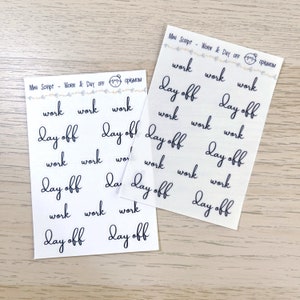 Mini Script - Work & Day off
work work work
day off day off
work work work
day off day off
work work work
day off day off
Mini Script - Work & Day off
work work work
day off day off
work work work
day off day off
work work work
day off day off